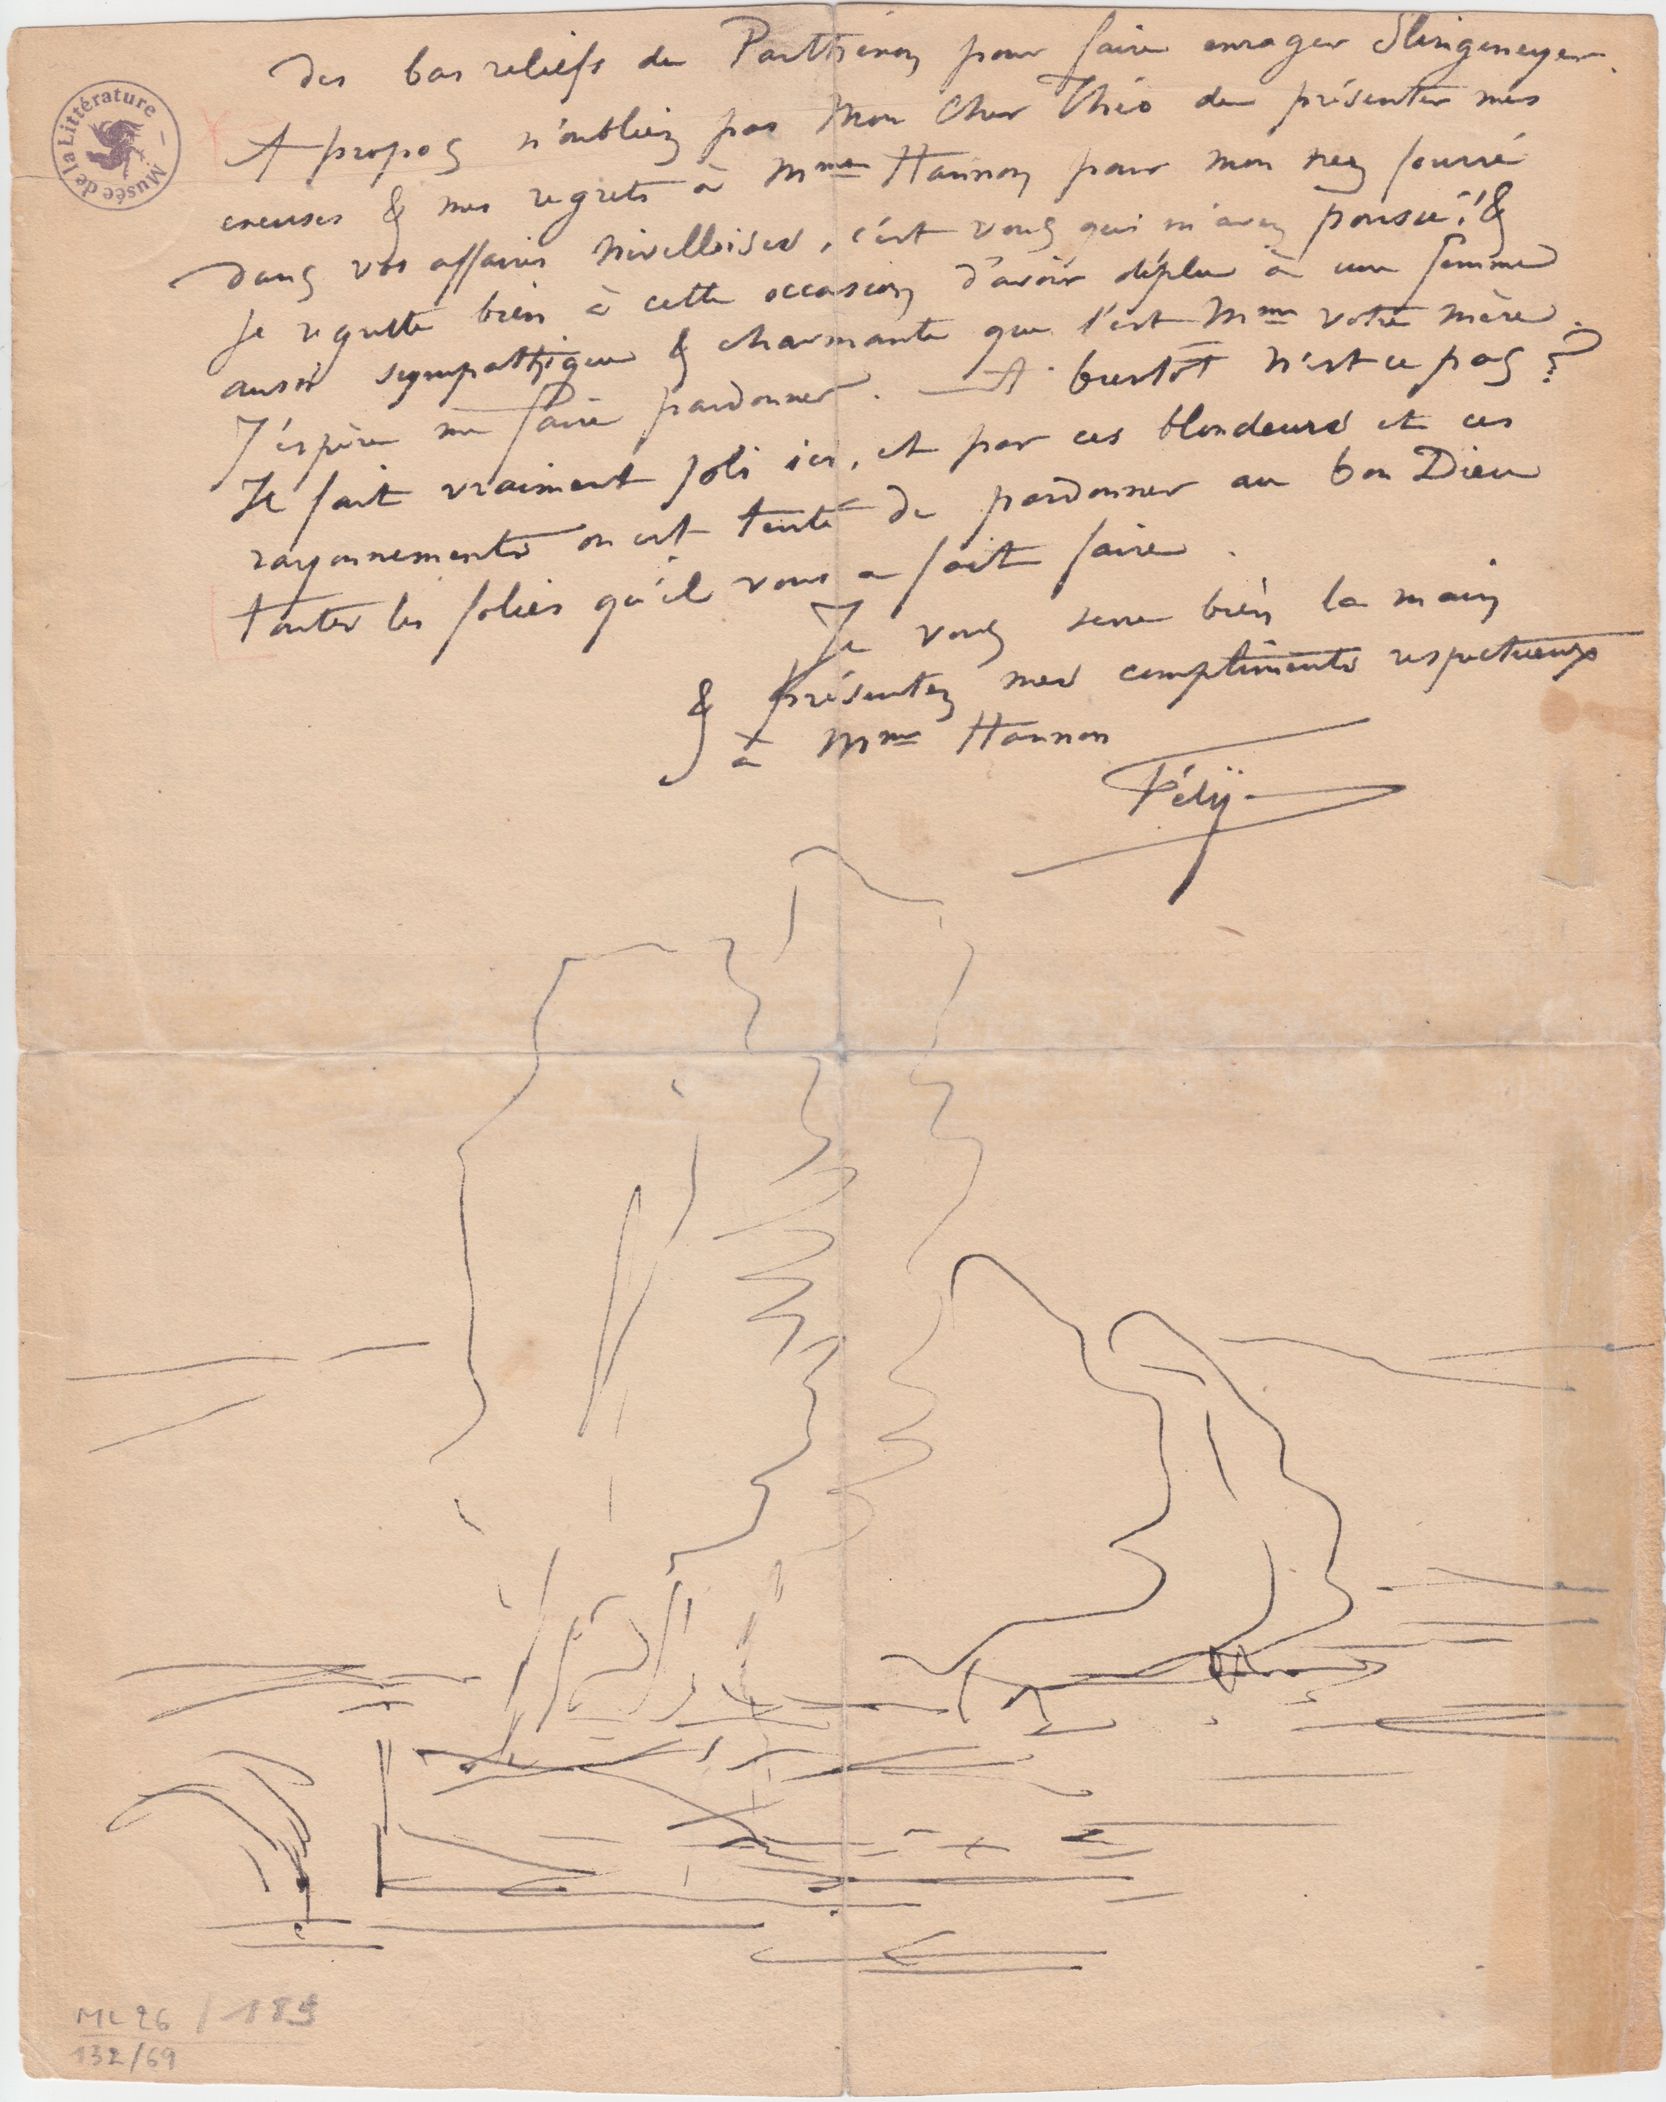 des bas reliefs du Parthénon pour faire enrager Slingeneyer.
A propos n'oubliez pas Mon Cher Théo de présenter mes
excuses & mes regrets à Mme Hannon pour mon nez fourré
dans vos affaires nivelloises, c'est vous qui m'avez poussé! &
je regrette bien à cette occasion d'avoir déplu à une femme
aussi sympathique & charmante que l'est Mme votre mère.
J'espère me faire pardonner. — A bientôt n'est ce pas?
Il fait vraiment joli ici, et par ces blondeurs et ces
rayonnements on est tenté de pardonner au bon Dieu
toutes les folies qu'il vous a fait faire.
Je vous serre bien la main
& présentez mes compliments respectueux
à Mme Hannon
Fély
Musée de la Littérature
ML 26 / 189
132/69